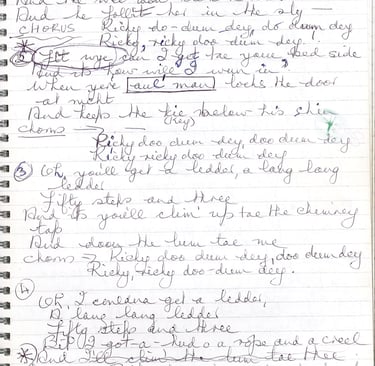 And he follit her in the sly —
CHORUS Ricky do-dum-dey, do dum dey
Ricky, ricky doo dum dey.
wye can I get tae your bed side
And it's how will I wun in,
When yere aul man locks the door
at nicht
And keeps the kie below his shin
(key)
Chorus →
Ricky doo dum dey, doo dum dey
Ricky ricky doo dum dey
③ Oh, you'll get a ledder, a lang lang
ledder
Fifty steps and three
And it's you'll clim' up tae the chimney
tap
And doon the lum tae me
Chorus → Ricky doo dum dey, doo dum dey
Ricky, ricky doo-dum dey.
④
Oh, I couldna get a ledder,
A lang lang ledder
Fifty steps and three
But I got a rope and a creel
And I'll clim the lum tae thee